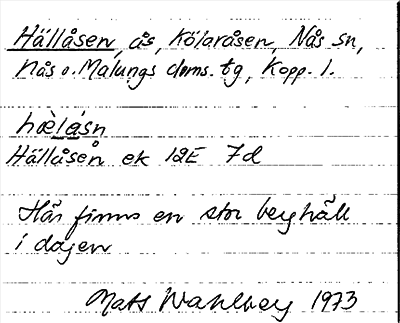 Hällåsen, ås, Kölaråsen, Nås sn,
Nås o. Malungs doms. tg, Kopp. l.
hæ̀lǻsn
Hällåsen ek 12E 7d
Här finns en stor berghäll
i dagen
Mats Wahlberg 1973